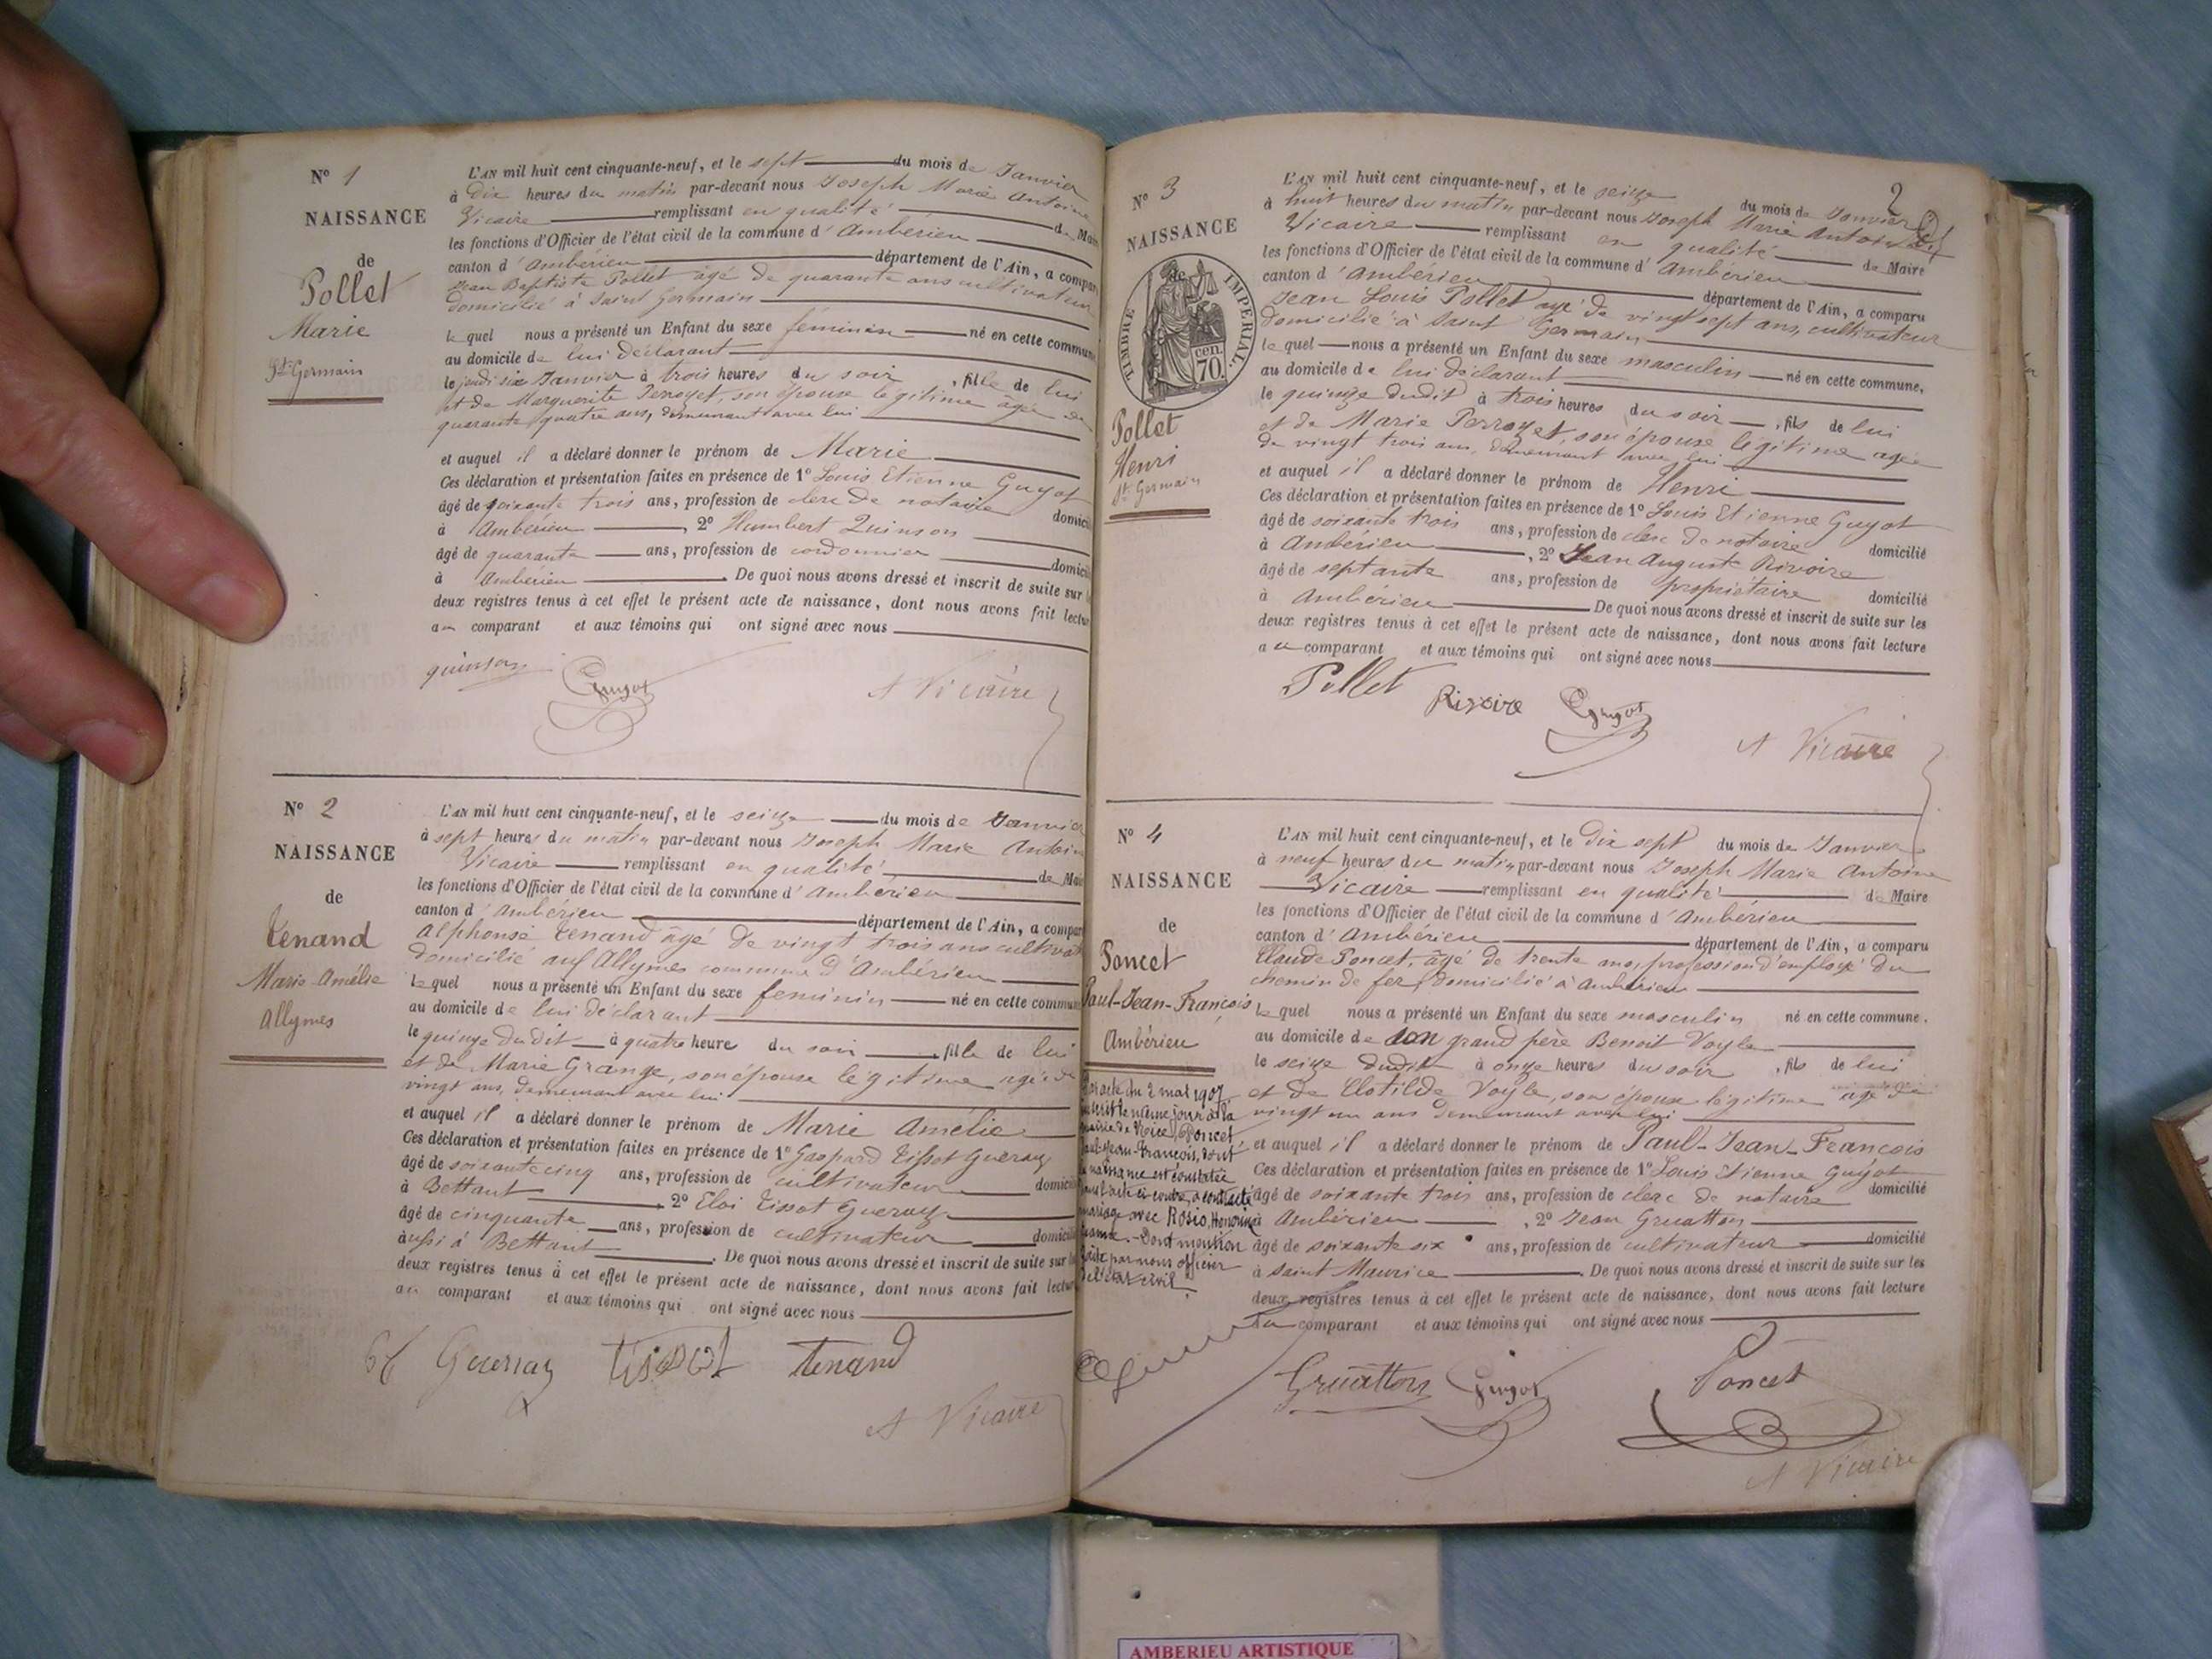 N° 1
NAISSANCE
de
Pollet
Marie
St Germain
L'AN mil huit cent cinquante-neuf, et le sept du mois de Janvier
à dix heures du matin par-devant nous Joseph Marie Antoine
Vicaire remplissant en qualité de Mai
les fonctions d'Officier de l'état civil de la commune d'Ambérieu
canton d'Ambérieu département de l'Ain, a compar
Jean Baptiste Pollet âgé de quarante ans cultivateur
domicilié à Saint Germain
lequel nous a présenté un Enfant du sexe féminin né en cette commune
au domicile de lui déclarant
le jeudi six Janvier à trois heures du soir, fille de lui
et de Marguerite Perroyet, son épouse légitime âgée de
quarante quatre ans, demeurant avec lui
et auquel il a déclaré donner le prénom de Marie
Ces déclaration et présentation faites en présence de 1° Louis Etienne Guyot
âgé de soixante trois ans, profession de clerc de notaire domici
à Ambérieu, 2° Humbert Quinson
âgé de quarante ans, profession de cordonnier domici
à Ambérieu. De quoi nous avons dressé et inscrit de suite sur
deux registres tenus à cet effet le présent acte de naissance, dont nous avons fait lectur
au comparant et aux témoins qui ont signé avec nous
quinson Guyot A Vicaire
N° 2
NAISSANCE
de
Tenand
Marie Amélie
Allymes
L'AN mil huit cent cinquante-neuf, et le seize du mois de Janvier
à sept heures du matin par-devant nous Joseph Marie Antoin
Vicaire remplissant en qualité de Mai
les fonctions d'Officier de l'état civil de la commune d'Ambérieu
canton d'Ambérieu département de l'Ain, a compar
Alphonse Tenand âgé de vingt trois ans cultivat
domicilié aux Allymes commune d'Ambérieu
lequel nous a présenté un Enfant du sexe féminin né en cette commune
au domicile de lui déclarant
le quinze dudit à quatre heure du soir, fille de lui
et de Marie Grange, son épouse légitime âgée de
vingt ans, demeurant avec lui
et auquel il a déclaré donner le prénom de Marie Amélie
Ces déclaration et présentation faites en présence de 1° Gaspard Tissot Gueraz
âgé de soixante cinq ans, profession de cultivateur domici
à Bettant, 2° Eloi Tissot Gueraz
âgé de cinquante ans, profession de cultivateur domici
aussi à Bettant. De quoi nous avons dressé et inscrit de suite sur
deux registres tenus à cet effet le présent acte de naissance, dont nous avons fait lectur
au comparant et aux témoins qui ont signé avec nous
Guerraz tissot tenand
A Vicaire
2
N° 3
NAISSANCE
de
TIMBRE IMPERIAL
cen.
70.
Pollet
Henri
St Germain
L'AN mil huit cent cinquante-neuf, et le seize du mois de Janvier
à huit heures du matin par-devant nous Joseph Marie Antoine
Vicaire remplissant en qualité de Maire
les fonctions d'Officier de l'état civil de la commune d'Ambérieu
canton d'Ambérieu département de l'Ain, a comparu
Jean Louis Pollet âgé de vingt sept ans, cultivateur
domicilié à Saint Germain
lequel nous a présenté un Enfant du sexe masculin né en cette commune,
au domicile de lui déclarant
le quinze dudit à trois heures du soir, fils de lui
et de Marie Perroyet, son épouse légitime agée
de vingt trois ans, demeurant avec lui
et auquel il a déclaré donner le prénom de Henri
Ces déclaration et présentation faites en présence de 1° Louis Etienne Guyot
âgé de soixante trois ans, profession de clerc de notaire domicilié
à Ambérieu, 2° Jean Auguste Rivoire
âgé de septante ans, profession de propriétaire domicilié
à Amberieu. De quoi nous avons dressé et inscrit de suite sur les
deux registres tenus à cet effet le présent acte de naissance, dont nous avons fait lecture
au comparant et aux témoins qui ont signé avec nous
Pollet Rivoire Guyot
A Vicaire
N° 4
NAISSANCE
de
Poncet
Paul-Jean-François
Ambérieu
Par acte du 2 mai 1907
inscrit le même jour à la
mairie de Nice, Poncet,
Paul-Jean-François, dont
la naissance est constatée
dans l'acte ci-contre, a contracté
mariage avec Rosio, Honorine
Jeanne. - Dont mention
faite par nous officier
de l'état civil.
L'AN mil huit cent cinquante-neuf, et le dix sept du mois de Janvier
à neuf heures du matin par-devant nous Joseph Marie Antoine
Vicaire remplissant en qualité de Maire
les fonctions d'Officier de l'état civil de la commune d'Ambérieu
canton d'Ambérieu département de l'Ain, a comparu
Claude Poncet, âgé de trente ans, profession d'employé du
chemin de fer, domicilié à Ambérieu
lequel nous a présenté un Enfant du sexe masculin né en cette commune.
au domicile de son grand père Benoit Voyle
le seize dudit à onze heures du soir, fils de lui
et de Clotilde Voyle, son épouse légitime agé de
vingt un ans demeurant avec lui
et auquel il a déclaré donner le prénom de Paul-Jean-François
Ces déclaration et présentation faites en présence de 1° Louis Etienne Guyot
âgé de soixante trois ans, profession de clerc de notaire domicilié
à Ambérieu, 2° Jean Gruatton
âgé de soixante six ans, profession de cultivateur domicilié
à Saint Maurice. De quoi nous avons dressé et inscrit de suite sur les
deux registres tenus à cet effet le présent acte de naissance, dont nous avons fait lecture
au comparant et aux témoins qui ont signé avec nous
Gruatton Guyot Poncet
A Vicaire
AMBERIEU ARTISTIQUE